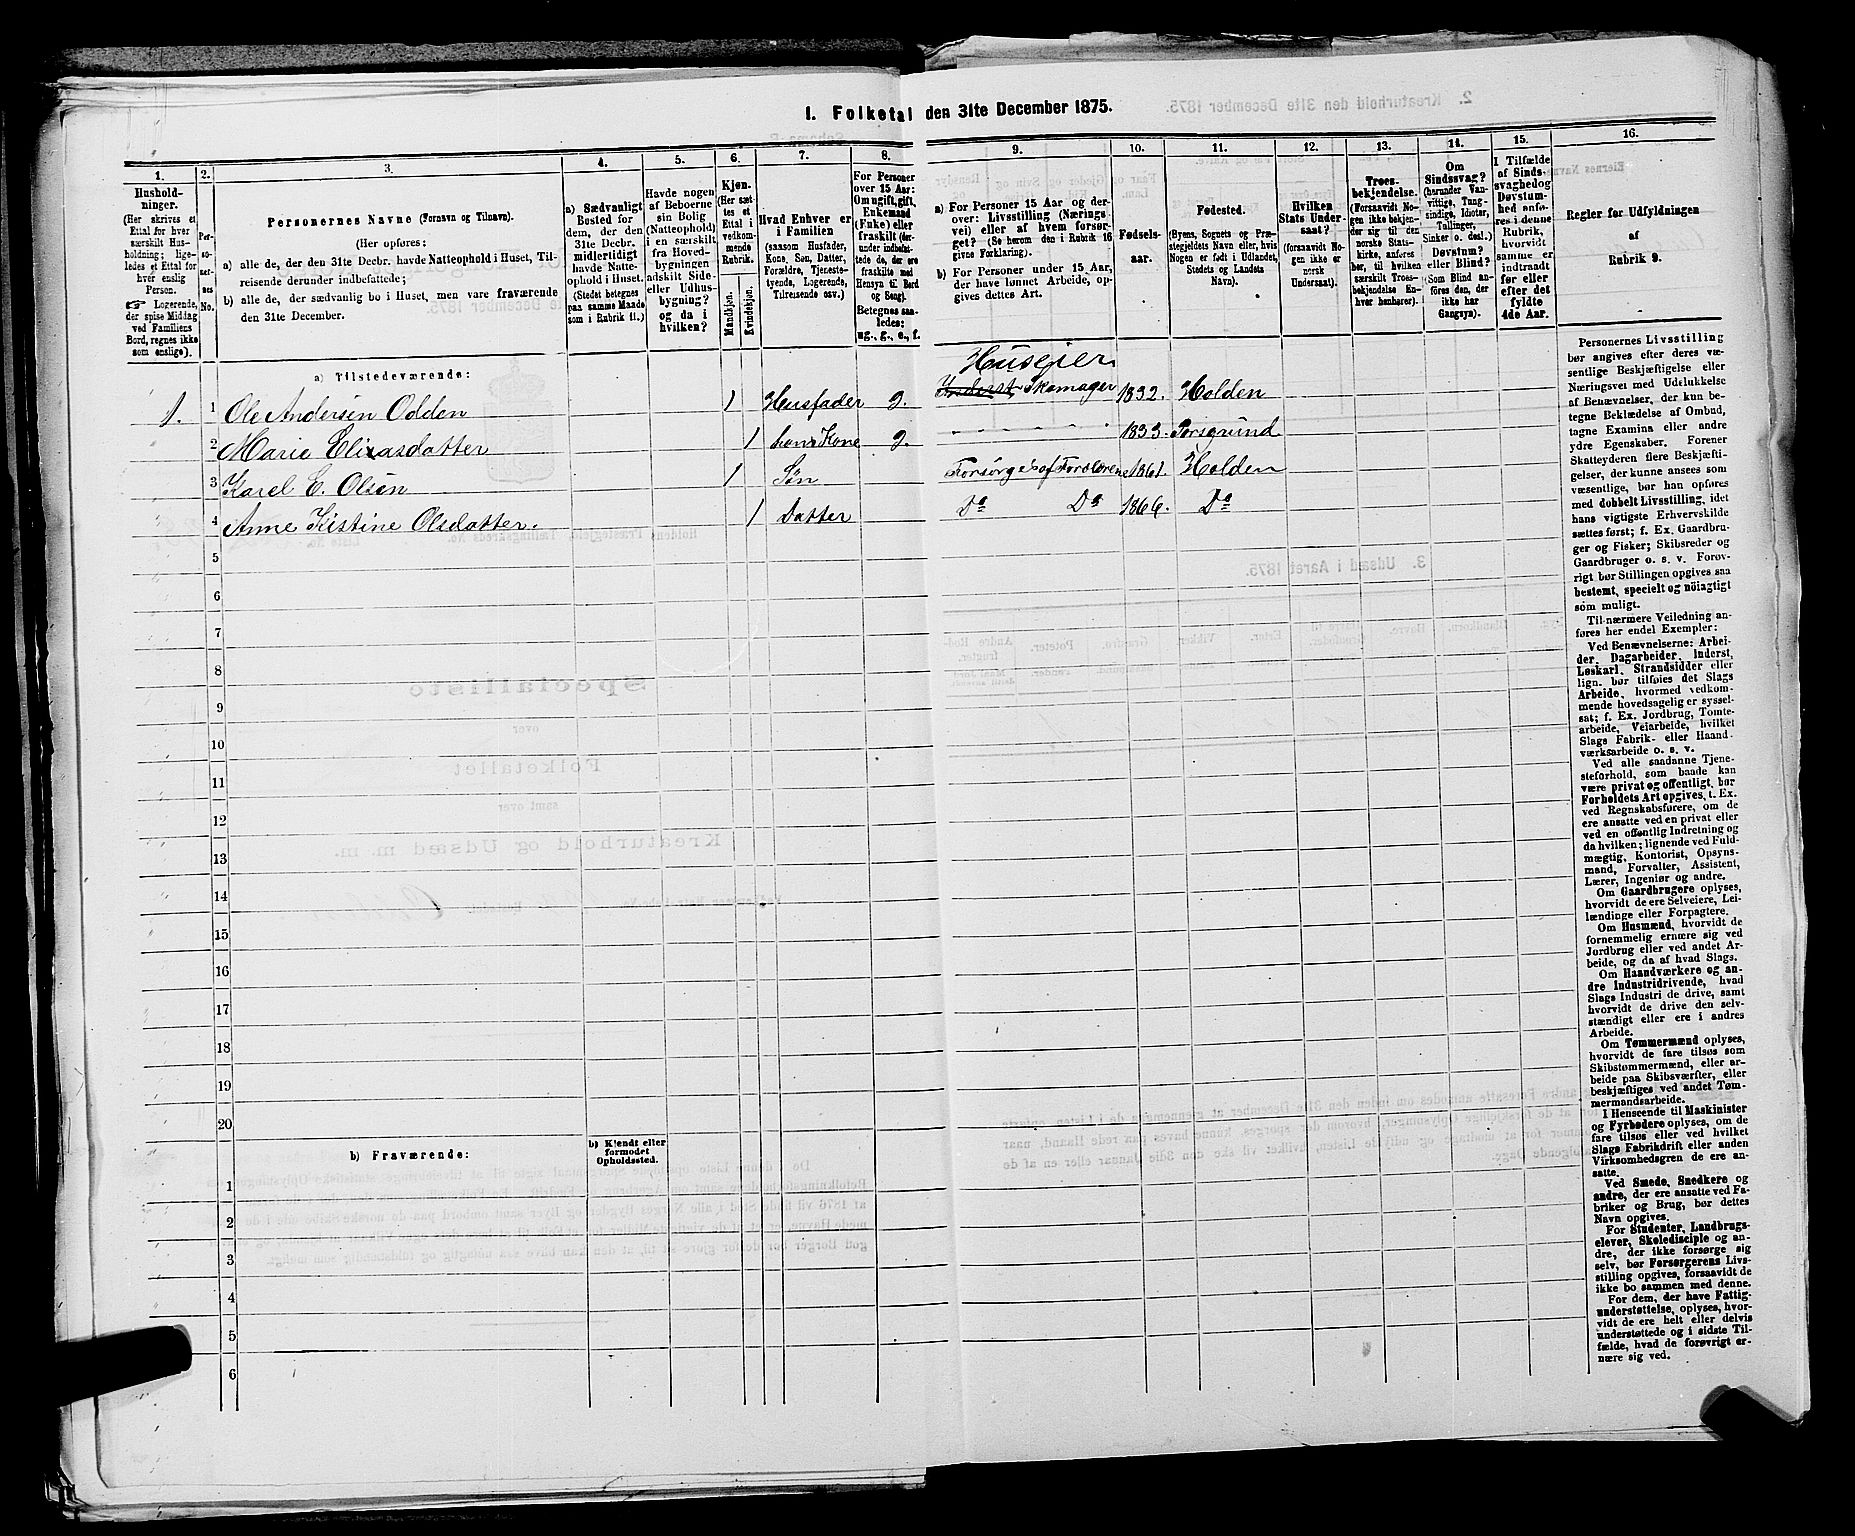 1. Folketal den 31te December 1875.
1. 2. 3. 4. 5. 6. 7. 8. 9. 10. 11. 12. 13. 14. 15. 16.
Hushold-
ninger.
(Her skrives et
Ettal for hver
særskilt Hus-
holdning; lige-
ledes et Ettal for
hver enslig
Person.
☞ Logerende,
der spise Middag
ved Familiens
Bord, regnes ikke
som enslige).
Per-
so-
ner-
nes
No.
Personernes Navne (Fornavn og Tilnavn).
(Her opføres:
a) alle de, der den 31te Decbr. havde Natteophold i Huset, Til-
reisende derunder indbefattede;
b) alle de, der sædvanlig bo i Huset, men vare fraværende
den 31te December.
a) Sædvanligt
Bosted for
dem, der den
31te Decbr.
midlertidigt
havde Natte-
ophold i Huset.
(Stedet betegnes
paa samme Maade
som i Rubrik 11.)
Havde nogen
af Beboerne
sin Bolig
(Natteophold)
i en særskilt
fra Hoved-
bygningen
adskilt Side-
eller Udhus-
bygning?
og da i
hvilken?
Kjøn.
(Her sæt-
tes et
Ettal i
vedkom-
mende
Rubrik.
Mandkjøn.
Kvindekjøn.
Hvad Enhver er
i Familien
(saasom Husfader,
Kone, Søn, Datter,
Forældre, Tjeneste-
tyende, Logerende,
Tilreisende osv.)
For Personer
over 15 Aar:
Om ugift, gift,
Enkemand
(Enke) eller
fraskilt (der-
under indbefat-
tede de, der ere
fraskilte med
Hensyn til Bord
og Seng).
Betegnes saa-
ledes:
ug., g., e., f.
a) For Personer 15 Aar og der-
over: Livsstilling (Nærings-
vei) eller af hvem forsør-
get? (Se herom den i Rubrik 16
givne Forklaring).
b) For Personer under 15 Aar,
der have lønnet Arbeide, op-
gives dettes Art.
Fødsels-
aar.
Fødested.
(Byens, Sognets og Præ-
stegjeldets Navn eller, hvis
Nogen er født i Udlandet,
Stedets og Landets
Navn).
Hvilken
Stats Under-
saat?
(forsaavidt No-
gen ikke er
norsk
Undersaat).
Troes-
bekjendelse.
(Forsaavidt No-
gen ikke bekjen-
der sig til den
norske Stats-
kirke, anføres
her, til hvilken
særskilt Troes-
bekjendelse En-
hver henhører).
Om
Sindssvag?
(herunder Van-
vittige, Tung-
sindige, Idioter,
Tallinger,
Sinker o. desl.)
Døvstum?
eller Blind?
(Som Blind an-
føres den, der
ikke har
Gangsyn).
I Tilfælde
af Sinds-
svaghed og
Døvstum-
hed anfø-
res i denne
Rubrik,
hvorvidt
samme er
indtraadt
før eller
efter det
fyldte
4de Aar.
Regler for Udfyldningen
af
Rubrik 9.
a) Tilstedeværende:
Huseier
1. 1 Ole Andersen Odden 1 Husfader g. Inderst, Skomager 1832. Holden
2 Marie Eliasdatter 1 hans Kone g. 1833. Porsgrund
3 Karel E. Olsen 1 Søn Forsørges af Forældrene 1861. Holden
4 Anne Kistine Olsdatter. 1 Datter Do Do 1866. Do
5
6
7
8
9
10
11
12
13
14
15
16
17
18
19
20
b) Fraværende:
b) Kjendt eller
formodet
Opholdssted.
1
2
3
4
5
6
Personernes Livsstilling
bør angives efter deres væ-
sentlige Beskjæftigelse eller
Næringsvei med Udelukkelse
af Benævnelser, der kun be-
tegne Beklædelse af Ombud,
tagne Examina eller andre
ydre Egenskaber. Forener
Skatteyderen flere Beskjæfti-
gelser, der kunne ansees som
væsentlige, bør han opføres
med dobbelt Livsstilling, idet
hans vigtigste Erhvervskilde
sættes først; f. Ex. Gaardbru-
ger og Fisker; Skibsreder og
Gaardbruger o. s. v. Forøv-
rigt bør Stillingen opgives saa
bestemt, specielt og nøiagtigt
som muligt.
Til nærmere Veiledning an-
føres her endel Exempler:
Ved Benævnelserne: Arbei-
der, Dagarbeider, Inderst,
Løskarl, Strandsidder eller
lign. bør tilføies det Slags
Arbeide, hvormed vedkom-
mende hovedsagelig er syssel-
sat; f. Ex. Jordbrug, Tomte-
arbeide, Veiarbeide, hvilket
Slags Fabrik- eller Haand-
værksarbeide o. s. v.
Ved alle saadanne Tjene-
steforhold, som baade kan
være privat og offentligt, bør
Forholdets Art opgives, t. Ex.
ved Regnskabsførere, om de
ere ansatte ved en privat eller
ved en offentlig Indretning og
da hvilken; lignende ved Fuld-
mægtig, Kontorist, Opsyns-
mand, Forvalter, Assistent,
Lærer, Ingeniør og andre.
Om Gaardbrugere oplyses,
hvorvidt de ere Selveiere, Lei-
lændinge eller Forpagtere.
Om Husmænd, hvorvidt de
fornemmelig ernære sig ved
Jordbrug eller ved andet Ar-
beide, og da af hvad Slags.
Om Haandværkere og an-
dre Industridrivende, hvad
Slags Industri de drive, samt
hvorvidt de drive den selv-
stændigt eller ere i andres
Arbeide.
Om Tømmermænd oplyses,
hvorvidt de fare tilsøs som
Skibstømmermænd, eller ar-
beide paa Skibsværfter, eller
beskjæftiges ved andet Tøm-
mermandsarbeide.
I Henseende til Maskinister
og Fyrbødere oplyses, om de
fare tilsøs eller ved hvilket
Slags Fabrikdrift eller anden
Virksomhedsgren de ere an-
satte.
Ved Smede, Snedkere og
andre, der ere ansatte ved Fa-
briker og Brug, bør dettes
Navn opgives.
For Studenter, Landbrugs-
elever, Skoledisciple og an-
dre, der ikke forsørge sig
selv, bør Forsørgerens Livs-
stilling opgives, forsaavidt de
ikke bo sammen med denne.
For dem, der have Fattig-
understøttelse, oplyses, hvor-
vidt de ere helt eller delvis
understøttede og i sidste Til-
fælde, hvad de forøvrigt er-
nære sig ved.